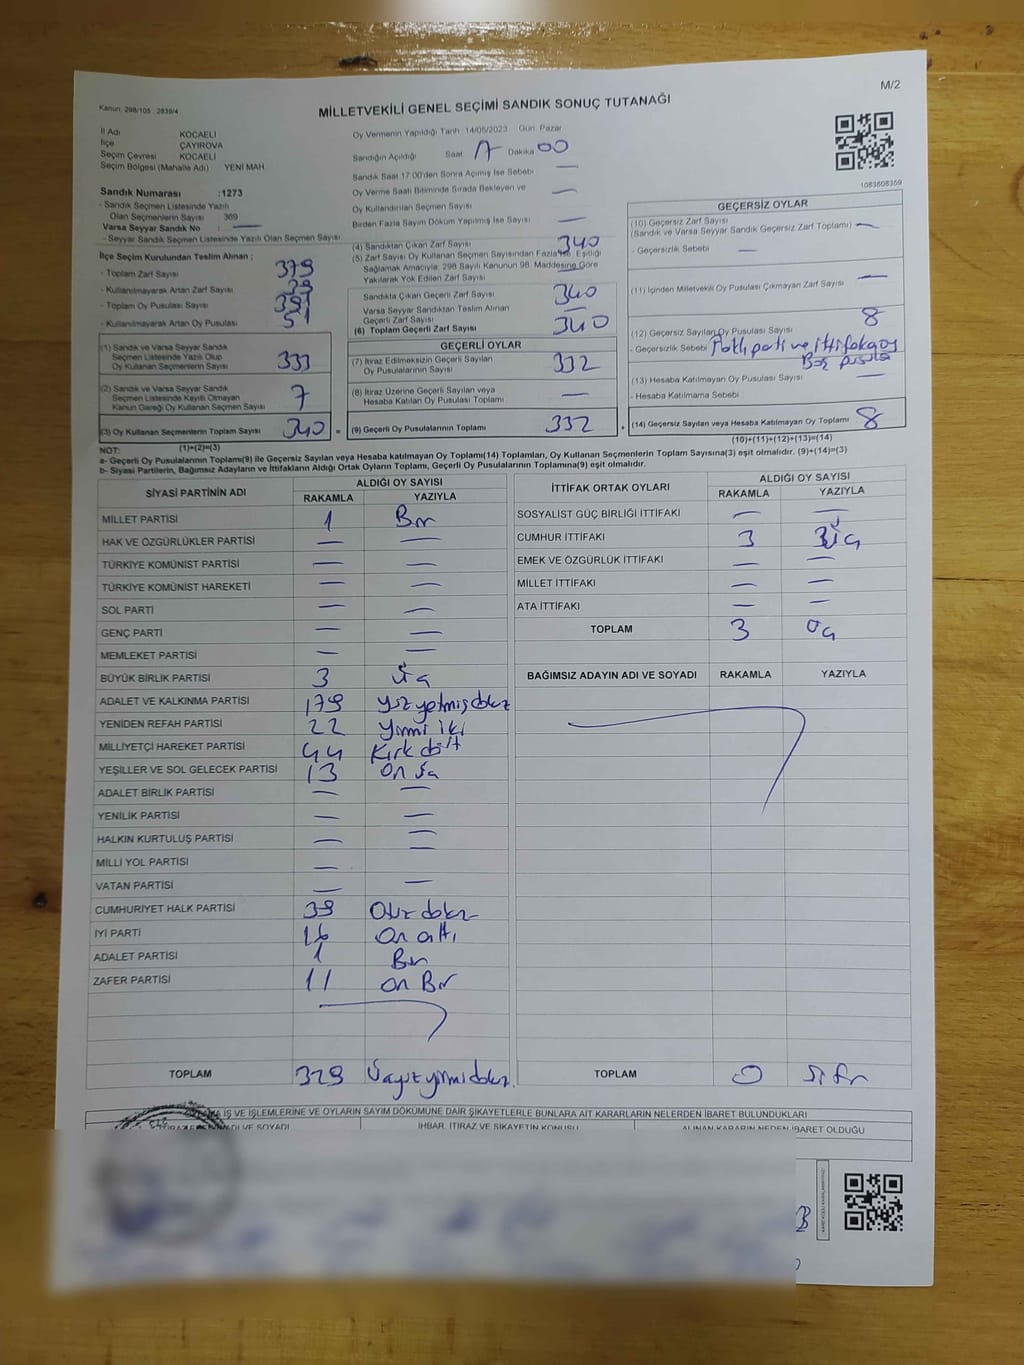 M/2
Kanun: 298/105 : 2839/4
MİLLETVEKİLİ GENEL SEÇİMİ SANDIK SONUÇ TUTANAĞI
İl Adı KOCAELİ
İlçe ÇAYIROVA
Seçim Çevresi KOCAELİ
Seçim Bölgesi (Mahalle Adı) YENİ MAH
Oy Vermenin Yapıldığı Tarih 14/05/2023 Gün: Pazar
Sandığın Açıldığı Saat 17 Dakika 00
Sandık Saat 17:00'den Sonra Açılmış İse Sebebi —
Oy Verme Saati Bitiminde Sırada Bekleyen ve
Oy Kullandırılan Seçmen Sayısı —
Birden Fazla Sayım Döküm Yapılmış İse Sayısı —
1083608359
Sandık Numarası :1273
- Sandık Seçmen Listesinde Yazılı
Olan Seçmenlerin Sayısı 369
Varsa Seyyar Sandık No : —
- Seyyar Sandık Seçmen Listesinde Yazılı Olan Seçmen Sayısı
İlçe Seçim Kurulundan Teslim Alınan ;
- Toplam Zarf Sayısı 379
- Kullanılmayarak Artan Zarf Sayısı 39
- Toplam Oy Pusulası Sayısı 391
- Kullanılmayarak Artan Oy Pusulası 51
(1) Sandık ve Varsa Seyyar Sandık
Seçmen Listesinde Yazılı Olup
Oy Kullanan Seçmenlerin Sayısı 333
(2) Sandık ve Varsa Seyyar Sandık
Seçmen Listesinde Kayıtlı Olmayan
Kanun Gereği Oy Kullanan Seçmen Sayısı 7
(3) Oy Kullanan Seçmenlerin Toplam Sayısı 340 =
(4) Sandıktan Çıkan Zarf Sayısı 340
(5) Zarf Sayısı Oy Kullanan Seçmen Sayısından Fazla İse, Eşitliği
Sağlamak Amacıyla; 298 Sayılı Kanunun 98. Maddesine Göre
Yakılarak Yok Edilen Zarf Sayısı —
Sandıkta Çıkan Geçerli Zarf Sayısı 340
Varsa Seyyar Sandıktan Teslim Alınan
Geçerli Zarf Sayısı —
(6) Toplam Geçerli Zarf Sayısı 340
GEÇERLİ OYLAR
(7) İtiraz Edilmeksizin Geçerli Sayılan
Oy Pusulalarının Sayısı 332
(8) İtiraz Üzerine Geçerli Sayılan veya
Hesaba Katılan Oy Pusulası Toplamı —
(9) Geçerli Oy Pusulalarının Toplamı 332 +
GEÇERSİZ OYLAR
(10) Geçersiz Zarf Sayısı
(Sandık ve Varsa Seyyar Sandık Geçersiz Zarf Toplamı) —
- Geçersizlik Sebebi —
(11) İçinden Milletvekili Oy Pusulası Çıkmayan Zarf Sayısı —
(12) Geçersiz Sayılan Oy Pusulası Sayısı 8
- Geçersizlik Sebebi Farklı parti ve ittifaka oy
Boş pusula
(13) Hesaba Katılmayan Oy Pusulası Sayısı —
- Hesaba Katılmama Sebebi
(14) Geçersiz Sayılan veya Hesaba Katılmayan Oy Toplamı 8
(10)+(11)+(12)+(13)=(14)
NOT: (1)+(2)=(3)
a- Geçerli Oy Pusulalarının Toplamı(9) ile Geçersiz Sayılan veya Hesaba katılmayan Oy Toplamı(14) Toplamları, Oy Kullanan Seçmenlerin Toplam Sayısına(3) eşit olmalıdır. (9)+(14)=(3)
b- Siyasi Partilerin, Bağımsız Adayların ve İttifakların Aldığı Ortak Oyların Toplamı, Geçerli Oy Pusulalarının Toplamına(9) eşit olmalıdır.
SİYASİ PARTİNİN ADI
ALDIĞI OY SAYISI
RAKAMLA YAZIYLA
MİLLET PARTİSİ 1 Bir
HAK VE ÖZGÜRLÜKLER PARTİSİ — —
TÜRKİYE KOMÜNİST PARTİSİ — —
TÜRKİYE KOMÜNİST HAREKETİ — —
SOL PARTİ — —
GENÇ PARTİ — —
MEMLEKET PARTİSİ — —
BÜYÜK BİRLİK PARTİSİ 3 Üç
ADALET VE KALKINMA PARTİSİ 179 yüz yetmiş dokuz
YENİDEN REFAH PARTİSİ 22 yirmi iki
MİLLİYETÇİ HAREKET PARTİSİ 44 Kırk dört
YEŞİLLER VE SOL GELECEK PARTİSİ 13 On üç
ADALET BİRLİK PARTİSİ — —
YENİLİK PARTİSİ — —
HALKIN KURTULUŞ PARTİSİ — —
MİLLİ YOL PARTİSİ — —
VATAN PARTİSİ — —
CUMHURİYET HALK PARTİSİ 39 Otuz dokuz
İYİ PARTİ 16 On altı
ADALET PARTİSİ 1 Bir
ZAFER PARTİSİ 11 on Bir
TOPLAM 329 Üçyüz yirmi dokuz
İTTİFAK ORTAK OYLARI
ALDIĞI OY SAYISI
RAKAMLA YAZIYLA
SOSYALİST GÜÇ BİRLİĞİ İTTİFAKI — —
CUMHUR İTTİFAKI 3 Üç
EMEK VE ÖZGÜRLÜK İTTİFAKI — —
MİLLET İTTİFAKI — —
ATA İTTİFAKI — —
TOPLAM 3 Üç
BAĞIMSIZ ADAYIN ADI VE SOYADI RAKAMLA YAZIYLA
TOPLAM 0 Sıfır
İŞ VE İŞLEMLERİNE VE OYLARIN SAYIM DÖKÜMÜNE DAİR ŞİKAYETLERLE BUNLARA AİT KARARLARIN NELERDEN İBARET BULUNDUKLARI
ADI VE SOYADI İHBAR, İTİRAZ VE ŞİKAYETİN KONUSU ALINAN KARARIN NEDEN İBARET OLDUĞU